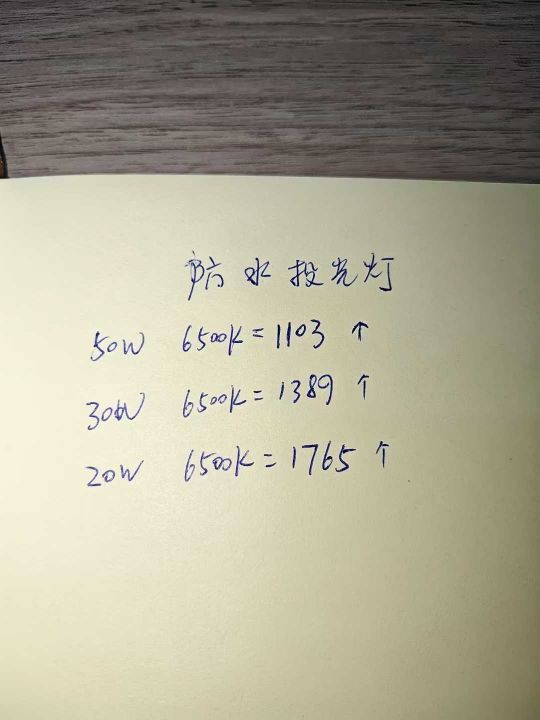 防水投光灯
50W 6500K=1103 个
30W 6500K=1389 个
20W 6500K=1765 个